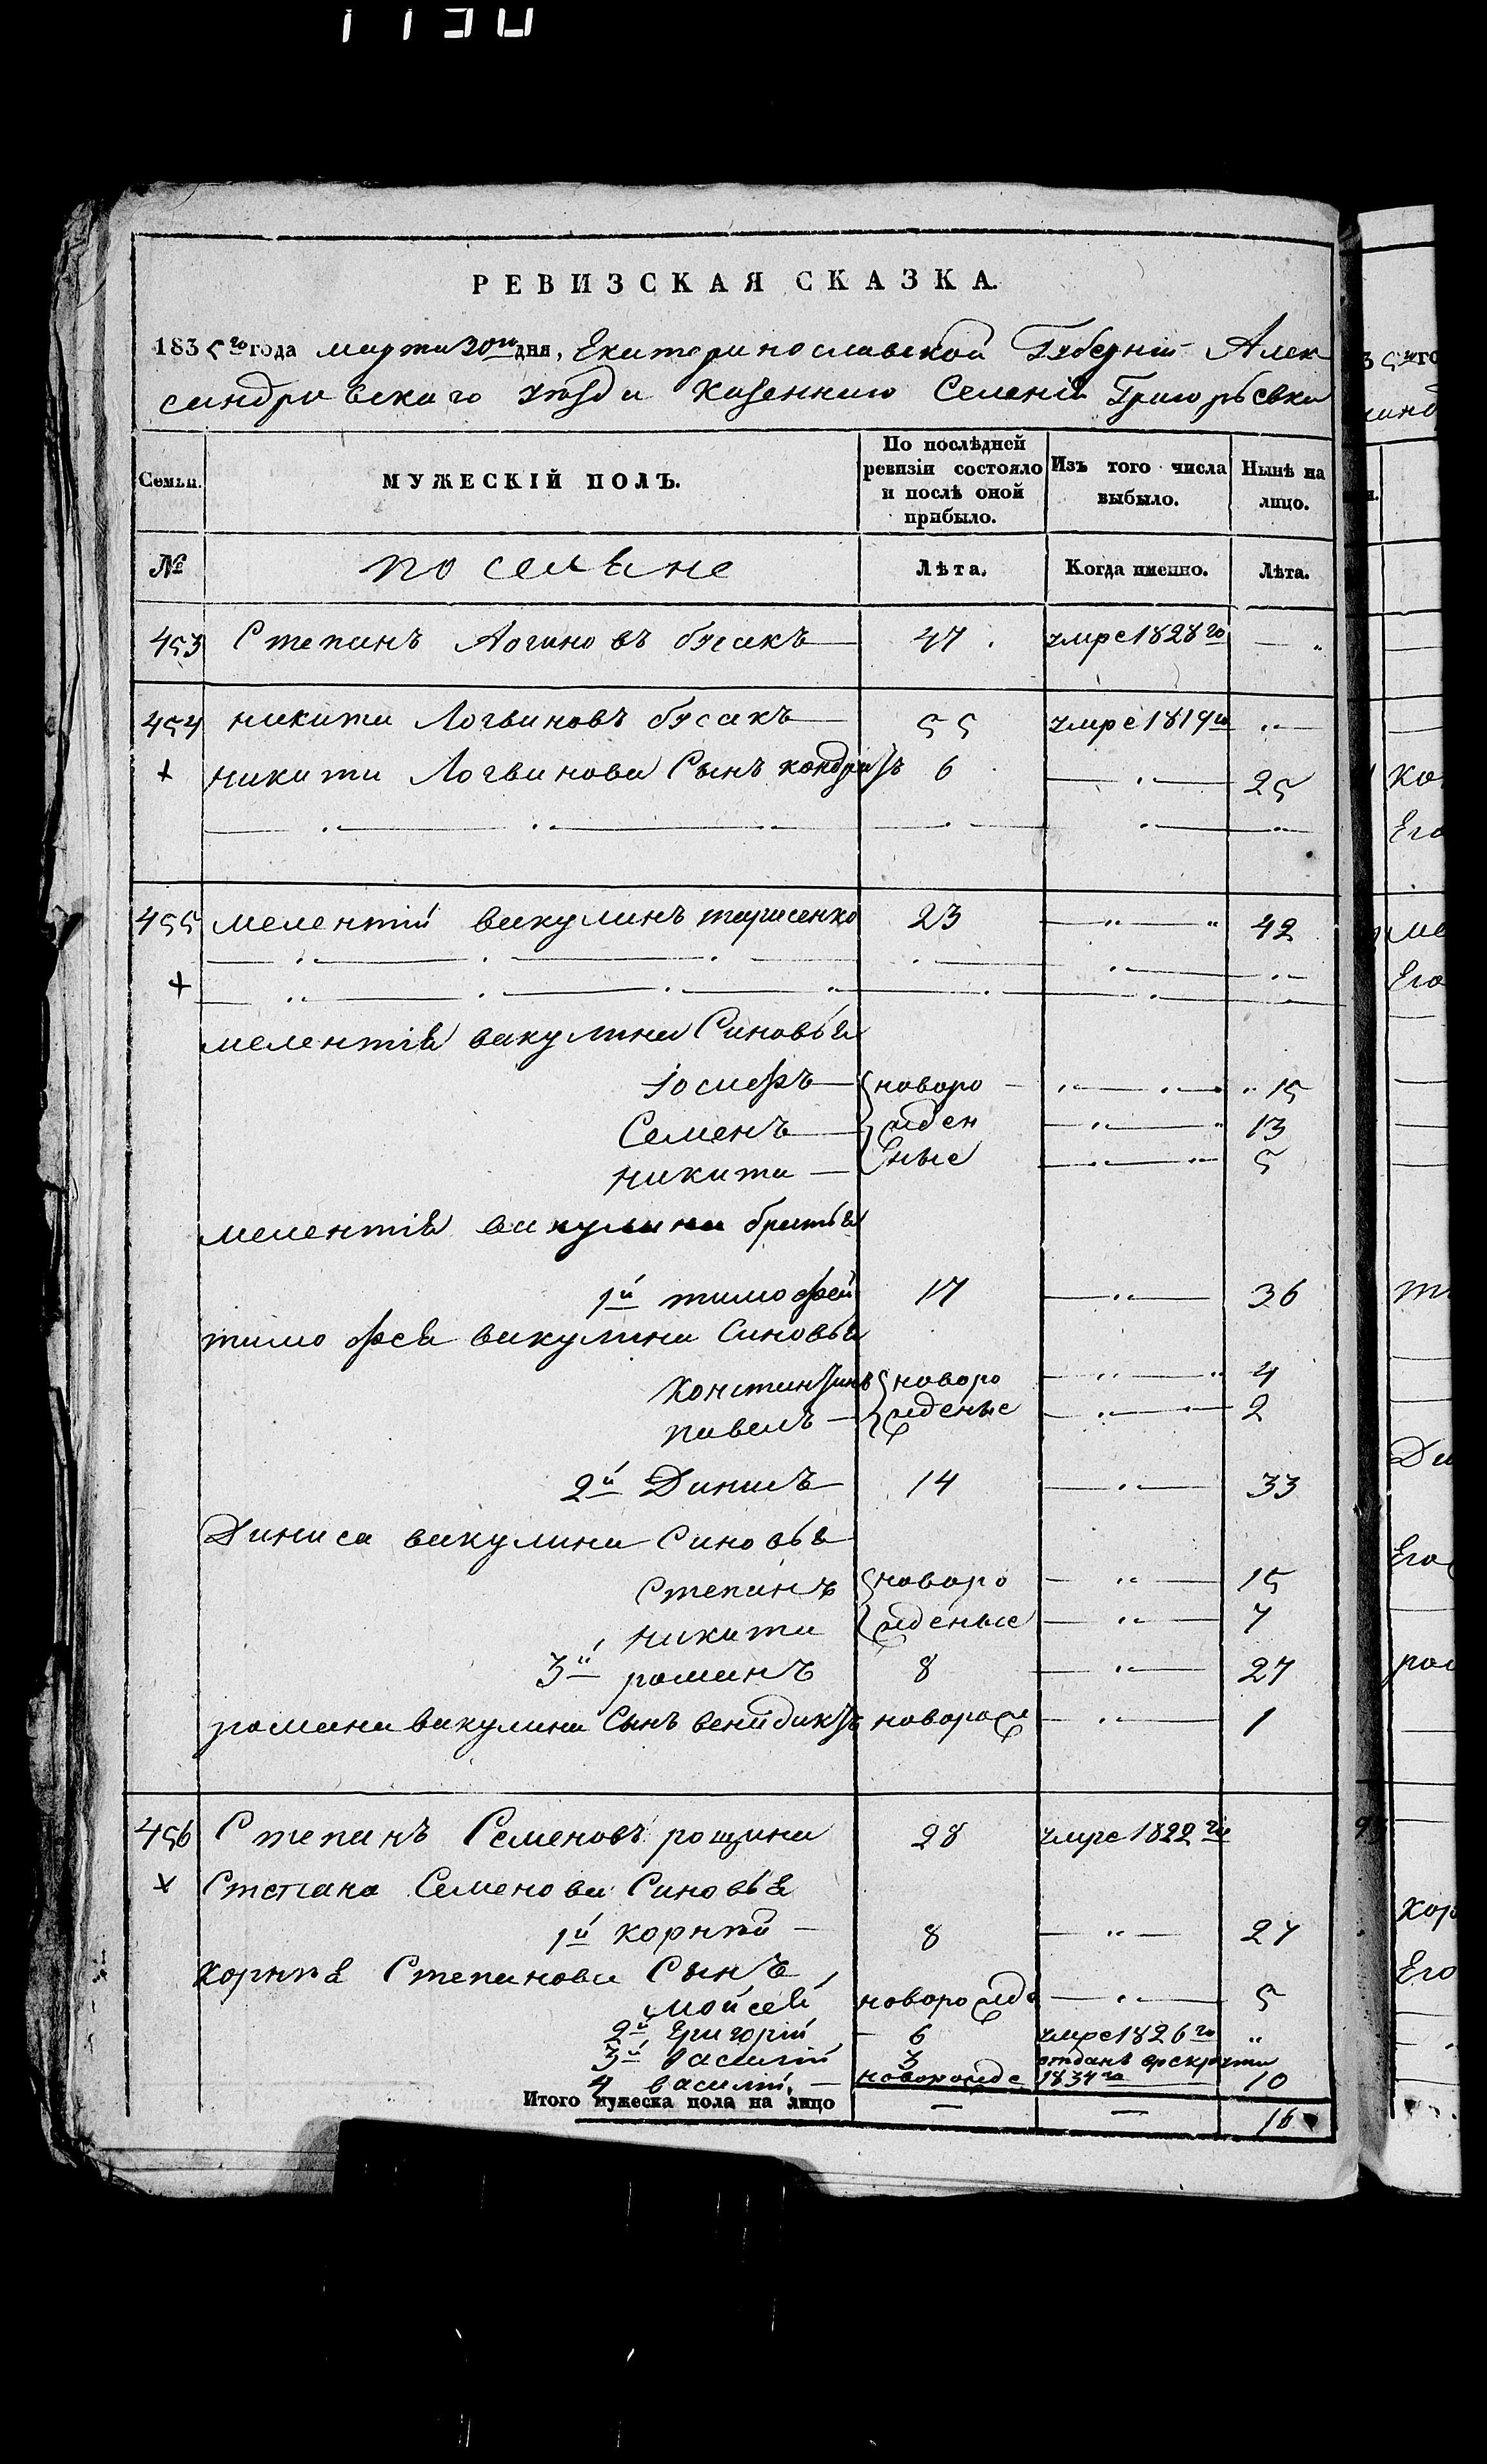 РЕВИЗСКАЯ СКАЗКА.
1835го года марта 30го дня, Екатеринославской Губерніи Алек
сандровскаго уѣзда казеннаго Селенія Григорьевки
Семьи. МУЖЕСКІЙ ПОЛЪ. По послѣдней ревизіи состояло и послѣ оной прибыло. Изъ того числа выбыло. Нынѣ на лицо.
№ поселяне Лѣта. Когда именно. Лѣта.
453 Степанъ Логиновъ бусакъ 47 умре 1828го
454 никита Логвиновъ бусакъ 55 умре 1819го
никити Логвинова Сынъ кондратъ 6 25
455 мелентій викулинъ тарасенко 23 42
мелентія викулина Синовья
Іосифъ новоро 15
Семенъ жден 13
никита ные 5
мелентія викулина братья
1й тимофей 17 36
тимофея викулина Синовья
Константинъ новоро 4
павелъ жденые 2
2й Динисъ 14 33
Диниса викулина Синовья
Степанъ новоро 15
никита жденые 7
3й романъ 8 27
романа викулина Сынъ венидиктъ новорож 1
456 Степанъ Семеновъ рощина 28 умре 1822го
Степана Семенова Синовья
1й корнѣй 8 27
корнѣя Степанова Сынъ
мойсей новорожде 5
2й Григорій 6 умре 1826го
3й василій 3 отданъ врекруты
4 василій новорожде 1834го 10
Итого мужеска пола на лицо 16